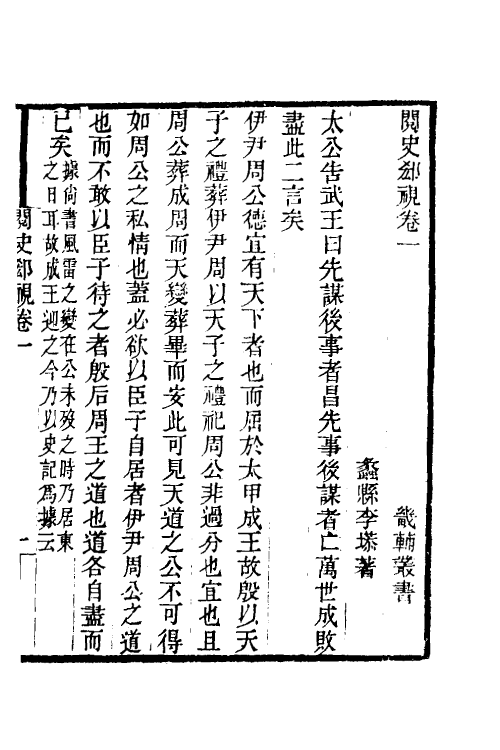 閱史郄視卷一 畿輔叢書
蠡縣李塨著
太公告武王曰先謀後事者昌先事後謀者亡萬世成敗
盡此二言矣
伊尹周公德宜有天下者也而屈於太甲成王故殷以天
子之禮葬伊尹周以天子之禮祀周公非過分也宜也且
周公葬成周而天變葬畢而安此可見天道之公不可得
如周公之私情也蓋必欲以臣子自居者伊尹周公之道
也而不敢以臣子待之者殷后周王之道也道各自盡而
已矣據尙書風雷之變在公未歿之時乃居東
之日耳故成王迎之今乃以史記爲據云
閱史郄視卷一 一